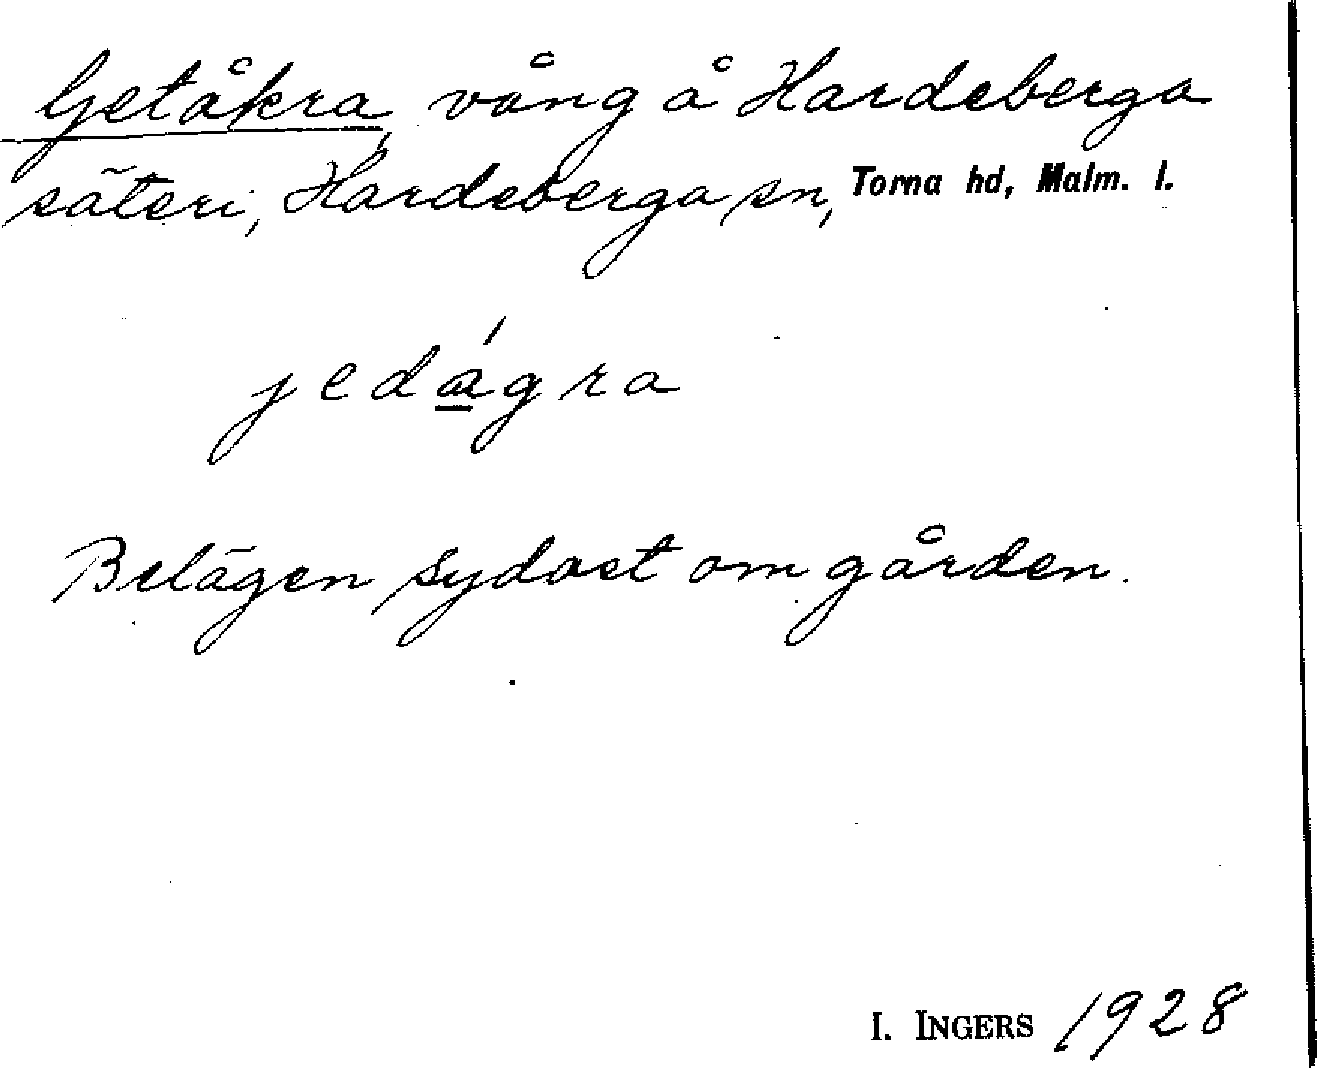 Getåkra, vång å Hardeberga
säteri, Hardeberga sn, Torna hd, Malm. l.
jedágra
Belägen sydost om gården.
I. INGERS 1928